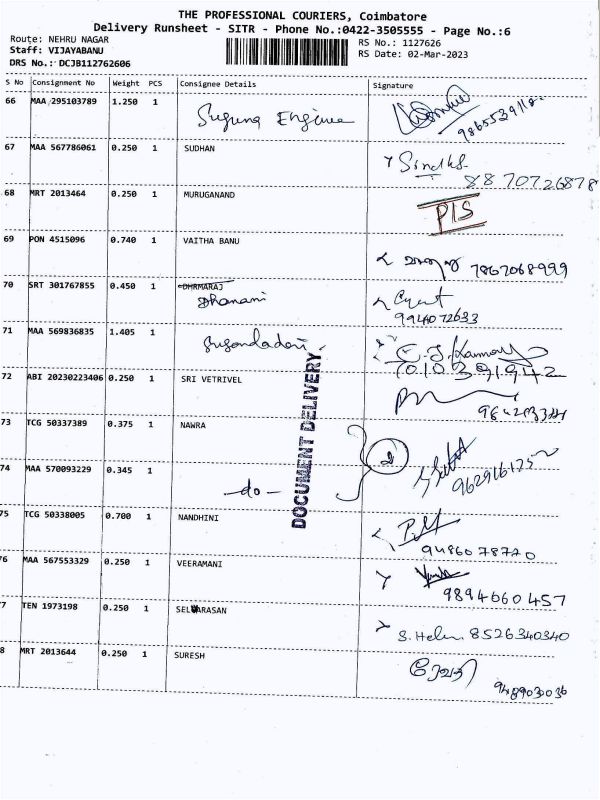 THE PROFESSIONAL COURIERS, Coimbatore
Delivery Runsheet - SITR - Phone No.:0422-3505555 - Page No.:6
Route: NEHRU NAGAR
Staff: VIJAYABANU
DRS No.: DCJB112762606
RS No.: 1127626
RS Date: 02-Mar-2023
S No Consignment No Weight PCS Consignee Details Signature
66 MAA 295103789 1.250 1 Suguna Engine
67 MAA 567786061 0.250 1 SUDHAN
8870726878
68 MRT 2013464 0.250 1 MURUGANAND
69 PON 4515096 0.740 1 VAITHA BANU
7867068999
70 SRT 301767855 0.450 1 DHRMARAJ
Dhanani
9994072633
71 MAA 569836835 1.405 1
72 ABI 20230223406 0.250 1 SRI VETRIVEL
73 TCG 50337389 0.375 1 NAWRA
74 MAA 570093229 0.345 1 -do-
DOCUMENT DELIVERY
75 TCG 50338005 0.700 1 NANDHINI
9486078770
76 MAA 567553329 0.250 1 VEERAMANI
9894660457
77 TEN 1973198 0.250 1 SELVARASAN
S. Helen 8526340340
8 MRT 2013644 0.250 1 SURESH